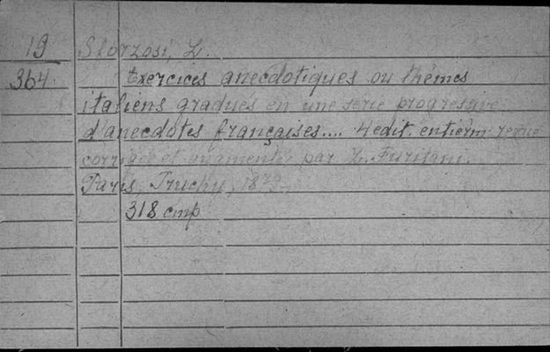 19
364
Sforzosi, L.
Exercices anecdotiques ou thèmes
italiens gradués en une série progressive
d'anecdotes françaises.... 4 edit. entièrm revue
corrigée et augmentée par L. Furitani.
Paris, Truchy, 1873.
318 cmp